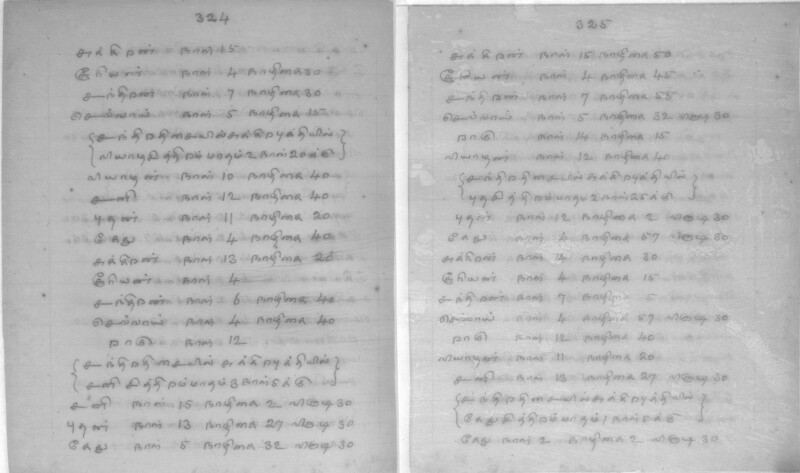 324
சுக்கிறன் நாள் 15
சூரியன் நாள் 4 நாழிகை 30
சந்திறன் நாள் 7 நாழிகை 30
செவ்வாய் நாள் 5 நாழிகை 15
{சந்திறதிசையில் சுக்கிறபுத்தியில்}
{வியாழசித்திறம் மாதம் 2 நாள் 20க்கு}
வியாழன் நாள் 10 நாழிகை 40
சனி நாள் 12 நாழிகை 40
புதன் நாள் 11 நாழிகை 20
கேது நாள் 4 நாழிகை 40
சுக்கிறன் நாள் 13 நாழிகை 20
சூரியன் நாள் 4
சந்திறன் நாள் 6 நாழிகை 40
செவ்வாய் நாள் 4 நாழிகை 40
றாகு நாள் 12
{சந்திறதிசையில் சுக்கிறபுத்தியில்}
{சனி சித்திறம் மாதம் 3 நாள் 5க்கு}
சனி நாள் 15 நாழிகை 2 விநாடி 30
புதன் நாள் 13 நாழிகை 27 விநாடி 30
கேது நாள் 5 நாழிகை 32 விநாடி 30
325
சுக்கிறன் நாள் 15 நாழிகை 50
சூரியன் நாள் 4 நாழிகை 45
சந்திறன் நாள் 7 நாழிகை 55
செவ்வாய் நாள் 5 நாழிகை 32 விநாடி 30
றாகு நாள் 14 நாழிகை 15
வியாழன் நாள் 12 நாழிகை 40
{சந்திறதிசையில் சுக்கிறபுத்தியில்}
{புதசித்திறம் மாதம் 2 நாள் 25க்கு}
புதன் நாள் 12 நாழிகை 2 விநாடி 30
கேது நாள் 4 நாழிகை 57 விநாடி 30
சுக்கிறன் நாள் 14 நாழிகை 30
சூரியன் நாள் 4 நாழிகை 15
சந்திறன் நாள் 7 நாழிகை 5
செவ்வாய் நாள் 4 நாழிகை 57 விநாடி 30
றாகு நாள் 12 நாழிகை 40
வியாழன் நாள் 11 நாழிகை 20
சனி நாள் 13 நாழிகை 27 விநாடி 30
{சந்திறதிசையில் சுக்கிறபுத்தியில்}
{கேதுசித்திறம் மாதம் 1 நாள் 5க்கு}
கேது நாள் 2 நாழிகை 2 விநாடி 30